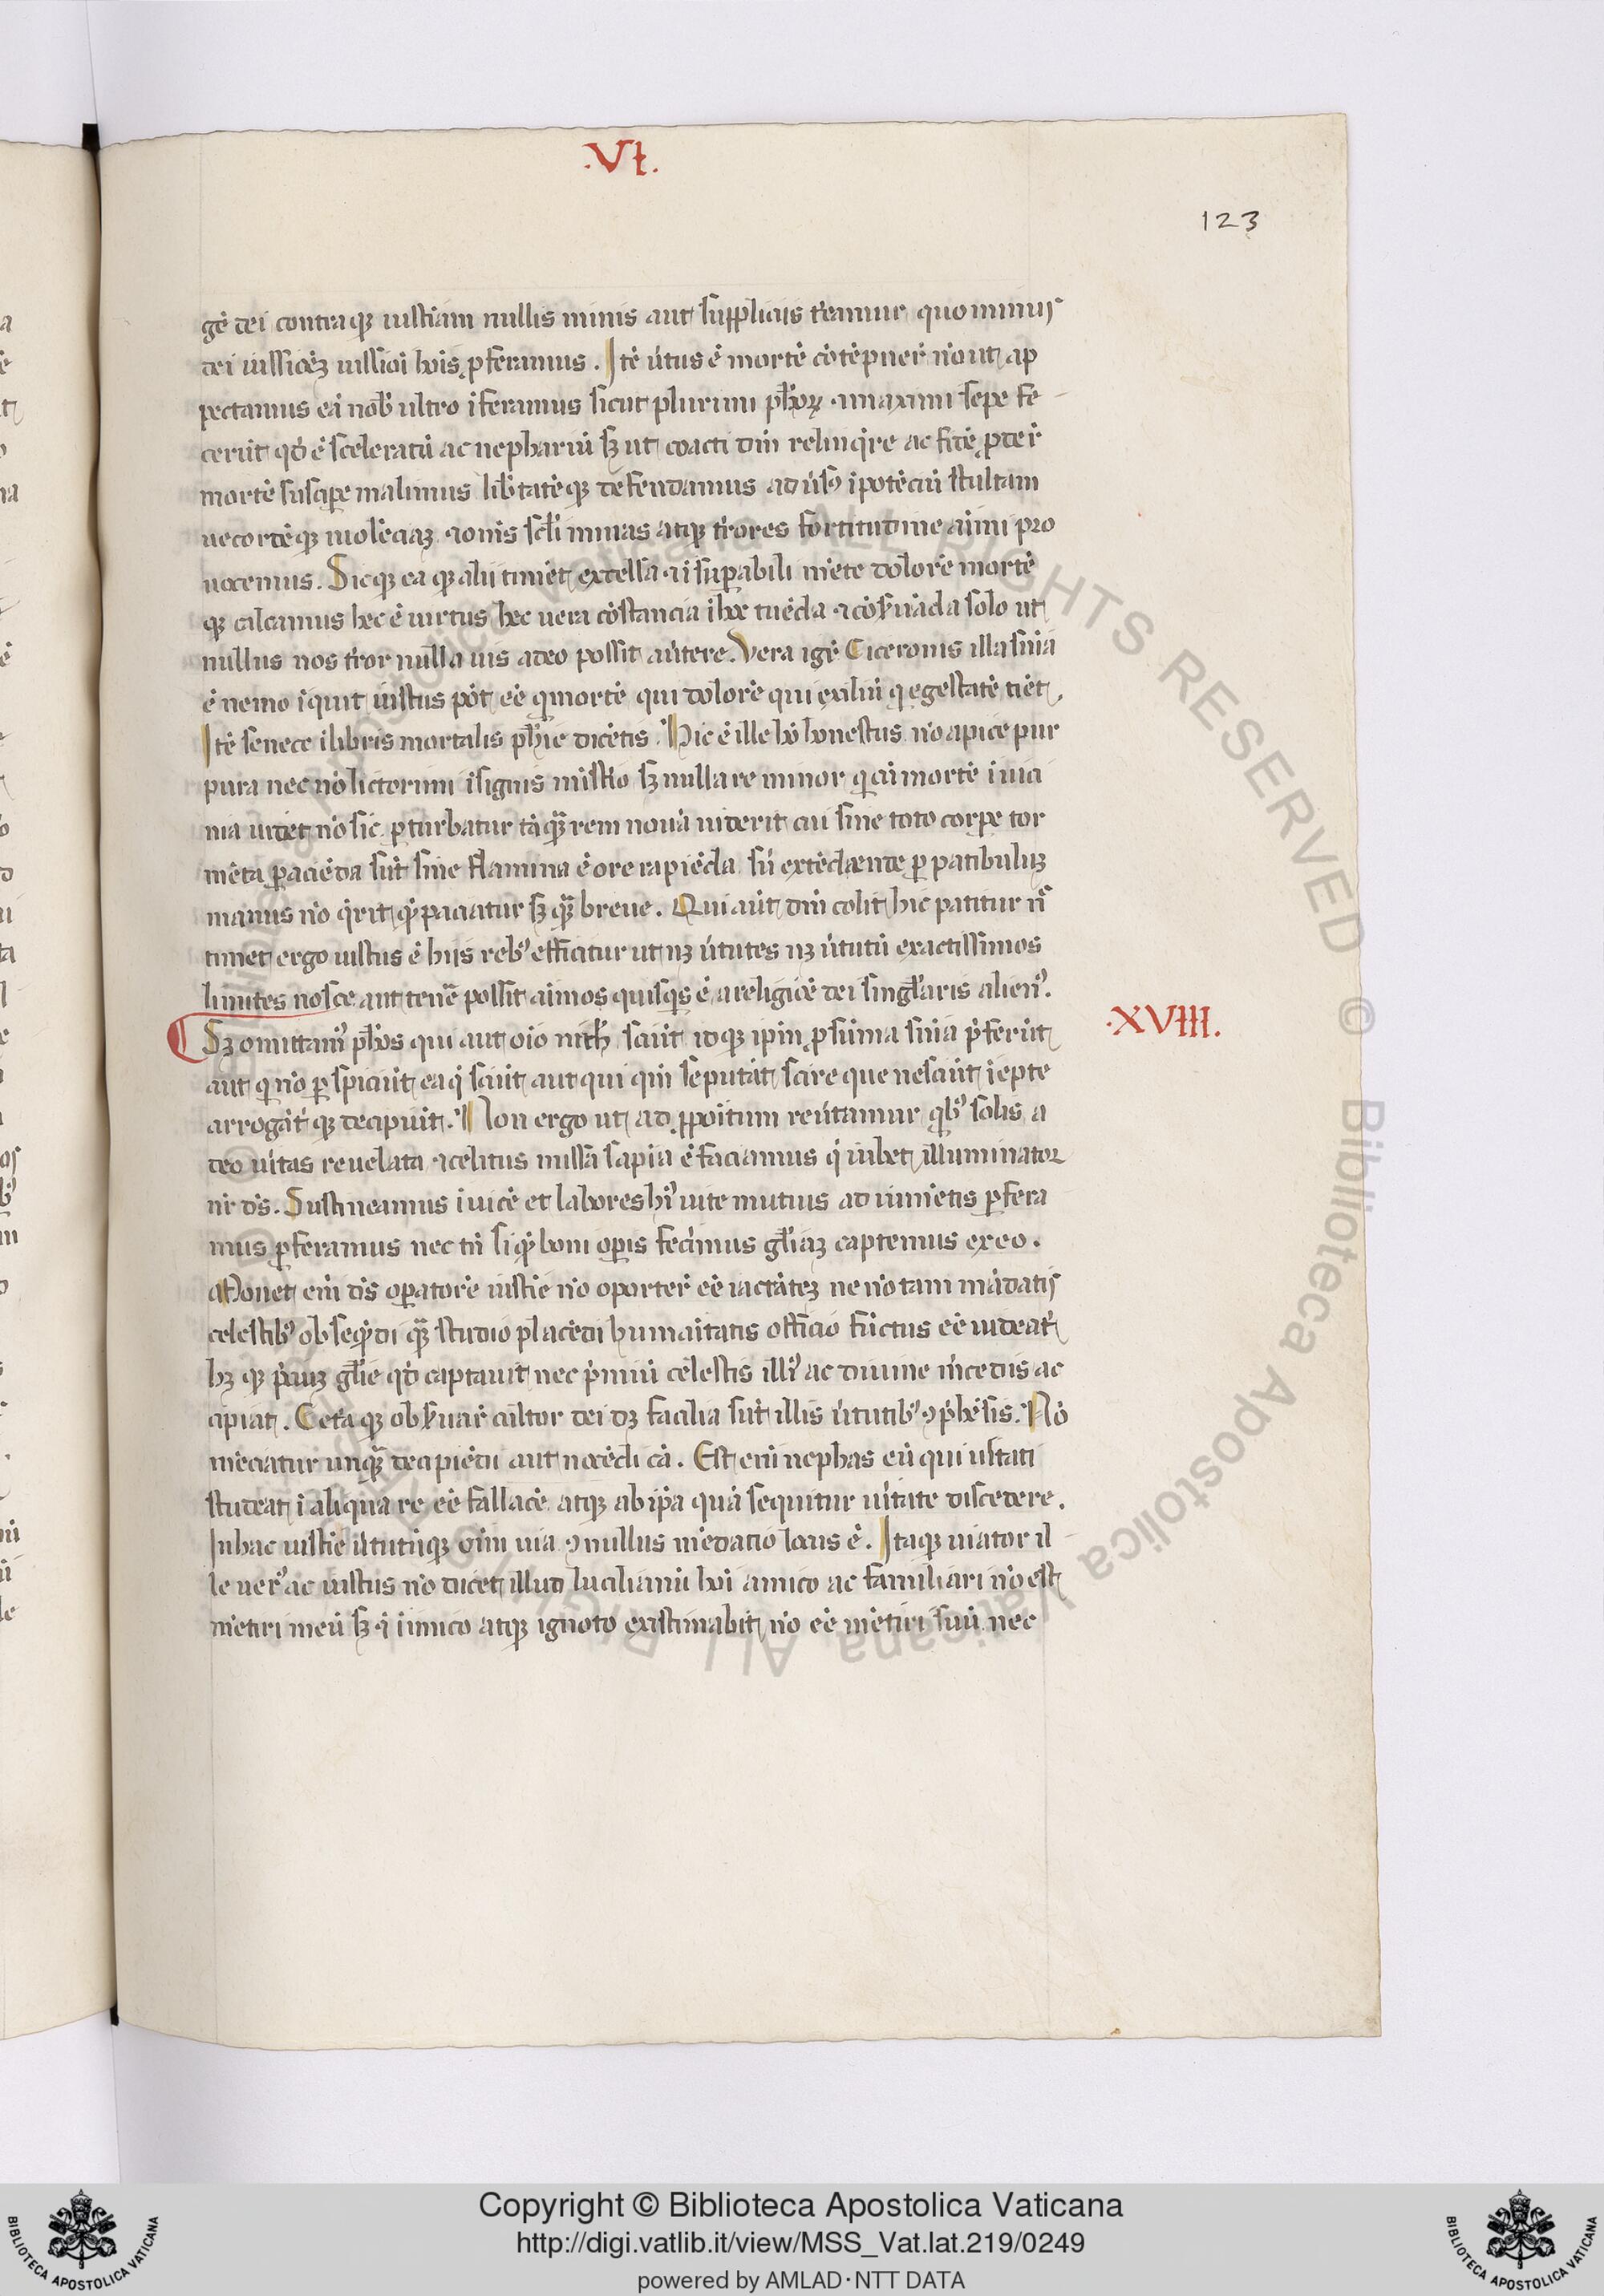 .VI.
123
gē dei contraq iustiam nullis minis aut suppliciis t̓eamur quominus
dei iussiōēz iussioī hoīs p̱feramus. Itē u̓tus ē mortē cōtēpner̄ nō ut ap
pectamus eā nob̓ ultro īferamus sicut plurimi ph̄oꝝ ⁊ maximi sepe fe
cerūt qđ ē sceleratū ac nephariū sꝫ ut coacti dm̄ relinq̓re ac fidē ꝓder̄
mortē suscipe malimus lib̓tatēq defendamus adu̓sꝰ ipotēciū stultam
uecordēq uiolēciaꝫ ⁊ om̄s sc̄li minas atq t̓rores fortitudine aīmi pro
uocemus. Sicq ea q alii timēt excelsa ⁊ īsupabili mēte dolorē mortē
q calcamus hec ē uirtus hec uera cōstancia ī hoc tuēda ⁊ cōs̓uāda solo ut
nullus nos t̓ror nulla uis a deo possit aūtere. Vera igr̄ Ciceronis illa sn̄ia
ē nemo īquit iustus pōt eē q mortē qui dolorē qui exiliū q egestatē tīet.
Itē senece ī libris mortalis ph̄ie dicētis. Hic ē ille hō honestus nō apice pur
pura nec nō lictorum īsignis mīst̓io sꝫ nulla re minor q cū mortē ī uici
nia uidet nō sic p̱turbatur tāq̄ rem nouā uiderit cui siue toto corpe tor
mēta paciēda sūt siue flamma ē ore rapiēda siū extēdaende p patibuluꝫ
manus nō q̄rit qd̓ paciatur sꝫ q̄ breue. Qui aūt dm̄ colit hic patitur n̄
timet ergo iustus ē hiis rebꝰ efficitur ut nꝫ u̓tutes nꝫ u̓tutū exactissimos
limites nosce aut tenē possit aīmos quisq̓s ē a religiōē dei singl̄aris alienꝰ.
.XVIII.
Sꝫ omittamꝰ ph̄os qui aut oīo nich̓ sciūt idq ip̄m p sūma sn̄ia p̓ferūt
aut q nō p spiciūt ea q̄ sciūt aut qui qm̄ se putāt scire que nesciūt īepte
arrogāt̓ q decipiūt. Non ergo ut ad p̱poitum reu̓tamur qbꝰ solis a
deo u̓itas reuelata ⁊ celitus missā sapīa ē faciamus q̄ iubet illuminator
nr̄ ds̄. Sustineamus īuicē et labores hꝰ uite mutuis adiumētis p̱fera
mus p̱feramus nec tn̄ si qd̓ boni opis fec̓imus gl̄iaꝫ captemus ex eo.
Monet em̄ ds̄ opatorē iustīe nō oporter̄ eē iactātēꝫ ne nō tam mādatis
celestibꝰ obseq̄ndi q̄ studio placēdi humaītatis officio fūctus eē uideat̓
hꝫ q p̓ciuꝫ gl̄ie qđ captauit nec p̓miū celestis illiꝰ ac diuine m̓cedis ac
cipiat. Cet̓a q obs̓uar̄ cultor dei dꝫ facilia sūt illis u̓tutibꝰ ꝯp̓hēsis. Nō
mēciatur unq̄ decipiēdi aut nocēdi cā. Est em̄ nephas eū qui u̓itati
studeat ī aliqua re eē fallacē atq ab ip̄a quā sequitur u̓itate discedere.
In hac iustīe u̓tutūq om̄ uia ꝯ nullus mēdatio locus ē. Itaq uiator il
le uerꝰ ac iustus nō dicet illud lucilianū hoī amico ac familiari nō est
mētiri meū sꝫ ⁊ ī imico atq ignoto existimabit nō eē mētiri suū nec
Copyright © Biblioteca Apostolica Vaticana
http://digi.vatlib.it/view/MSS_Vat.lat.219/0249
powered by AMLAD·NTT DATA